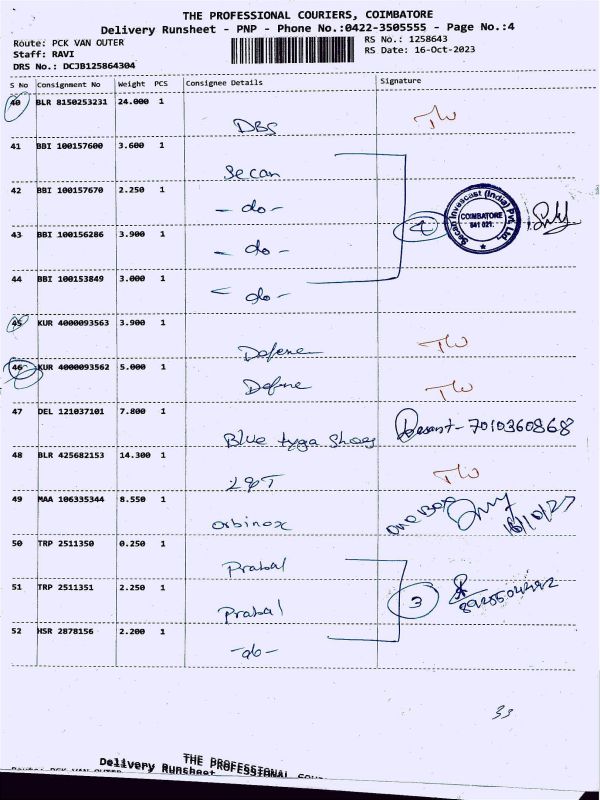 THE PROFESSIONAL COURIERS, COIMBATORE
Delivery Runsheet - PNP - Phone No.:0422-3505555 - Page No.:4
Route: PCK VAN OUTER
Staff: RAVI
DRS No.: DCJB125864304
RS No.: 1258643
RS Date: 16-Oct-2023
S No Consignment No Weight PCS Consignee Details Signature
40 BLR 8150253231 24.000 1
DBS
41 BBI 100157600 3.600 1
Secan
42 BBI 100157670 2.250 1
- do -
43 BBI 100156286 3.900 1
- do -
44 BBI 100153849 3.000 1
- do -
4
Secan Invescast (India) Pvt. Ltd.
COIMBATORE
641 021.
45 KUR 4000093563 3.900 1
46 KUR 4000093562 5.000 1
47 DEL 121037101 7.800 1
Blue tyga Shoes
7010360868
48 BLR 425682153 14.300 1
49 MAA 106335344 8.550 1
orbinox
One Box
50 TRP 2511350 0.250 1
Prabal
51 TRP 2511351 2.250 1
Prabal
3
52 HSR 2878156 2.200 1
- do -
33
THE PROFESSIONAL COUR
Delivery Runsheet
Route: PCK VAN OUTER